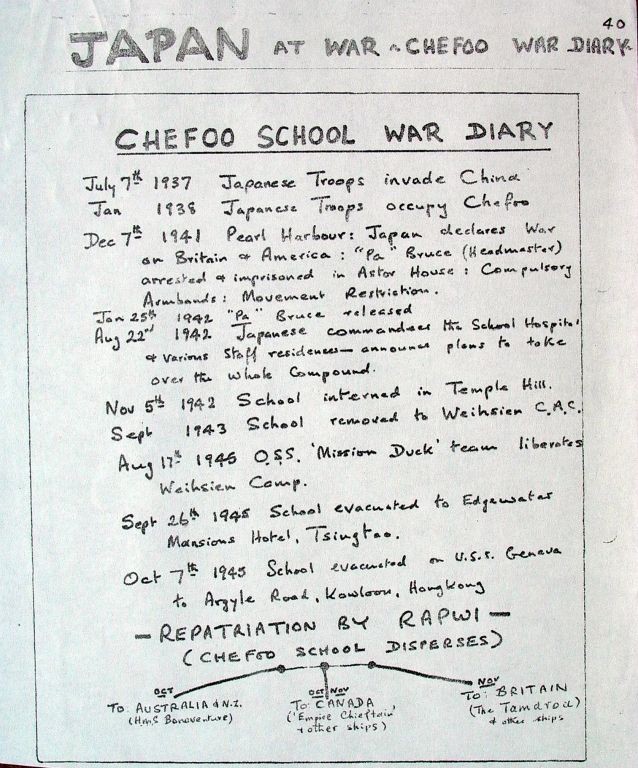 40
JAPAN AT WAR ~ CHEFOO WAR DIARY
CHEFOO SCHOOL WAR DIARY
July 7th 1937 Japanese Troops invade China
Jan 1938 Japanese Troops occupy Chefoo
Dec 7th 1941 Pearl Harbour: Japan declares War
on Britain & America: "Pa" Bruce (Headmaster)
arrested & imprisoned in Astor House: Compulsory
Armbands: Movement Restriction.
Jan 25th 1942 "Pa" Bruce released
Aug 22nd 1942 Japanese commandeer the School Hospital
& various Staff residences — announce plans to take
over the whole Compound.
Nov 5th 1942 School interned in Temple Hill.
Sept 1943 School removed to Weihsien C.A.C.
Aug 17th 1945 O.S.S. 'Mission Duck' team liberates
Weihsien Camp.
Sept 26th 1945 School evacuated to Edgewater
Mansions Hotel, Tsingtao.
Oct 7th 1945 School evacuated on U.S.S. Geneva
to Argyle Road, Kowloon, Hongkong
— REPATRIATION BY RAPWI —
(CHEFOO SCHOOL DISPERSES)
OCT
TO: AUSTRALIA & N.Z.
(HMS Bonaventure)
OCT NOV
TO: CANADA
('Empire Chieftain'
& other ships)
NOV
TO: BRITAIN
(The Tamdrod
& other ships